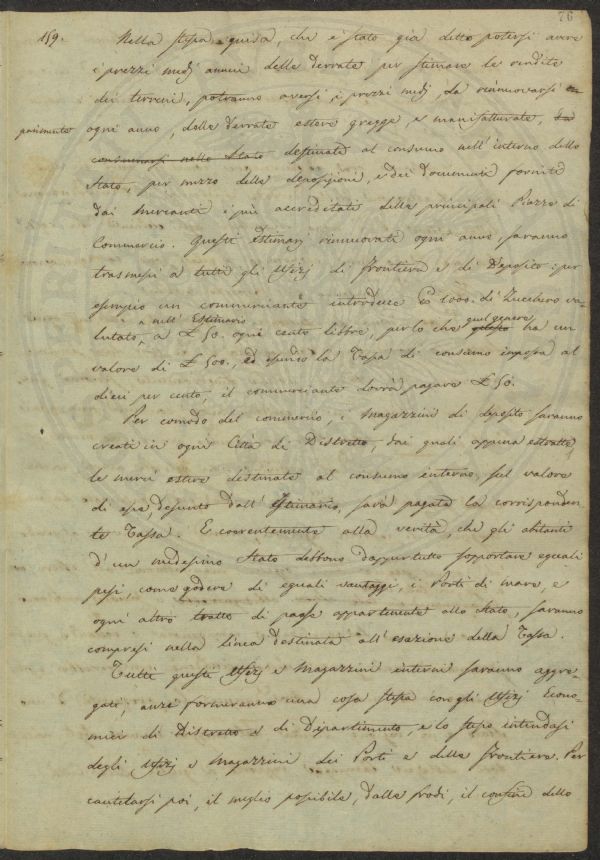 76
159. Nella stessa guisa, che è stato già detto potersi avere
i prezzi medj annui delle derrate per stimare le rendite
dei terreni, potranno aversi i prezzi medj, da rinnuovarsi
parimente ogni anno, delle derrate estere gregge, e manifatturate, da
consumarsi nello Stato destinate al consumo nell'interno dello
Stato, per mezzo delle deposizioni, e dei documenti forniti
dai Mercanti i più accreditati delle principali Piazze di
Commercio. Questi Estimarj rinnuovati ogni anno, saranno
trasmessi a tutti gli Ufizj di Frontiera e di Deposito: per
esempio un commerciante introduce 1000. di Zucchero va-
lutato, nell'Estimario, a £ 50. ogni cento libbre, per lo che quel genere ha un
valore di £ 500., ed essendo la Tassa di consumo imposta al
dieci per cento, il commerciante dovrà pagare £ 50.
Per comodo del commercio, i Magazzini di deposito saranno
creati in ogni Città di Distretto, dai quali appena estratte
le merci estere destinate al consumo interno, sul valore
di esse, desunto dall'Estimario, sarà pagata la corrisponden-
te Tassa. E coerentemente alla verità, che gli abitanti
d'un medesimo Stato debbono dappertutto sopportare eguali
pesi, come godere di eguali vantaggi, i Porti di mare, e
ogni altro tratto di paese appartenente allo Stato, saranno
compresi nella linea destinata all'esazione della Tassa.
Tutti questi Ufizj e Magazzini interni saranno aggre-
gati, anzi formeranno una cosa stessa con gli Ufizj Econo-
mici di Distretto e di Dipartimento, e lo stesso intendasi
degli Ufizj e Magazzini dei Porti e delle Frontiere. Per
cautelarsi poi, il meglio possibile, dalle frodi, il confine dello